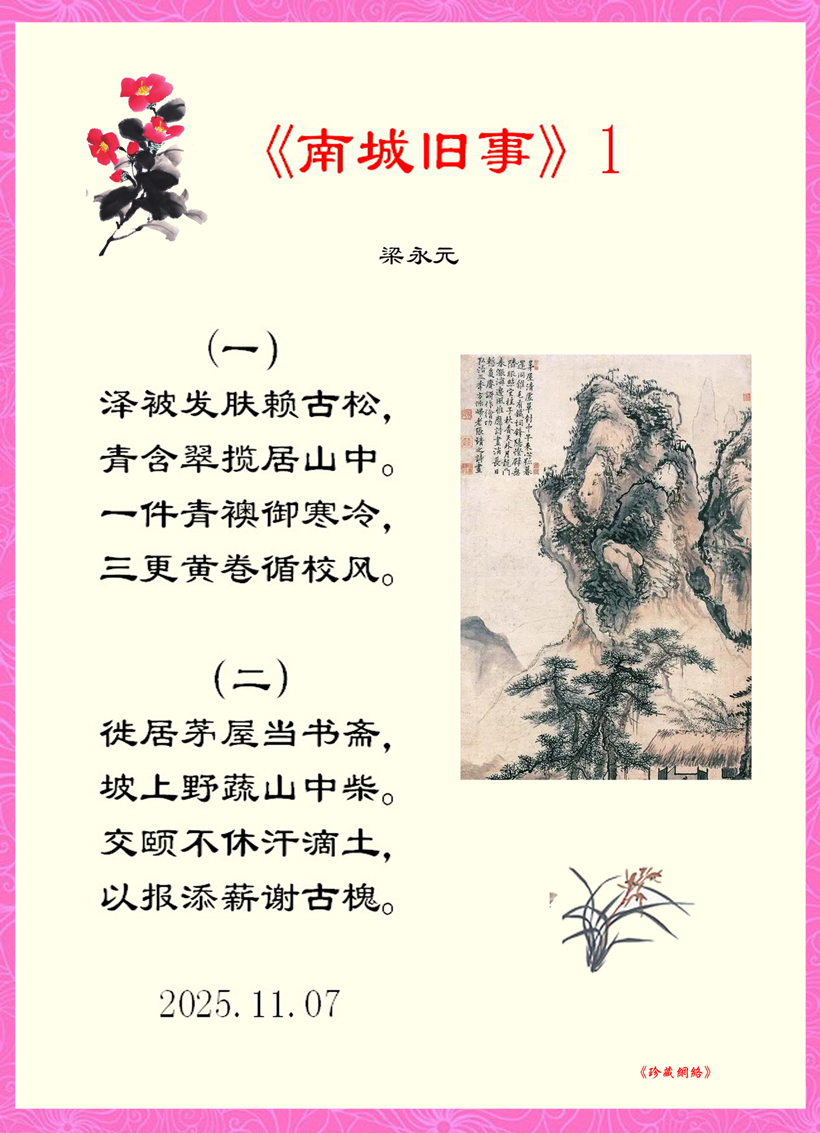 《南城旧事》1
梁永元
(一)
泽被发肤赖古松，
青含翠揽居山中。
一件青襖御寒冷，
三更黄卷循校风。
(二)
徙居茅屋当书斋，
坡上野蔬山中柴。
交颐不休汗滴土，
以报添薪谢古槐。
2025.11.07
《珍藏網絡》